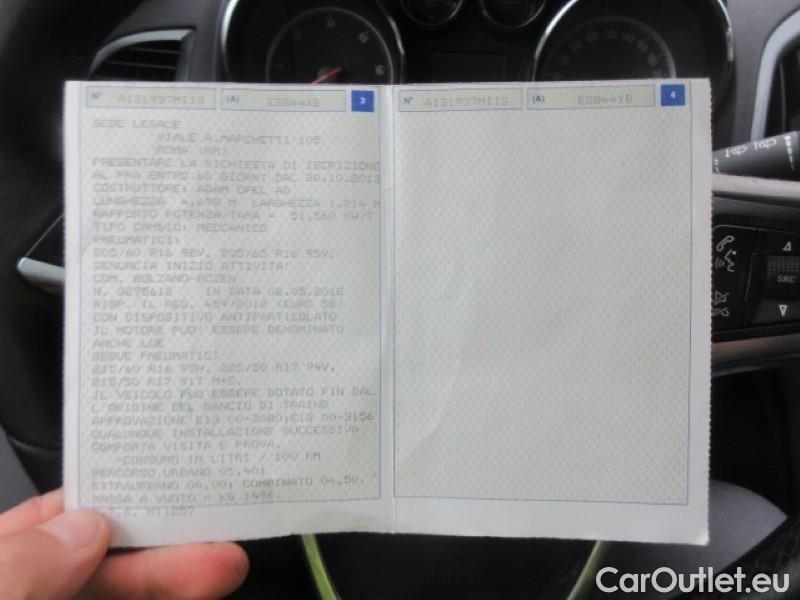 N° A131937MI13 (A) ES844XB 3
N° A131937MI13 (A) ES844XB 4
SEDE LEGALE
VIALE A.MARCHETTI 105
ROMA (RM)
PRESENTARE LA RICHIESTA DI ISCRIZIONE
AL PRA ENTRO 60 GIORNI DAL 20.10.2013
COSTRUTTORE: ADAM OPEL AG
LUNGHEZZA 4,698 M LARGHEZZA 1,814 M
RAPPORTO POTENZA/TARA = 51,560 KW/T
TIPO CAMBIO: MECCANICO
PNEUMATICI:
205/60 R16 92V, 205/65 R16 95V,
DENUNCIA INIZIO ATTIVITA'
COM. BOLZANO-BOZEN
N. 3275612 IN DATA 02.05.2012
RISP. IL REG. 459/2012 (EURO 5B)
CON DISPOSITIVO ANTIPARTICOLATO
IL MOTORE PUO' ESSERE DENOMINATO
ANCHE LUE
SEGUE PNEUMATICI
215/60 R16 95H, 225/50 R17 94V,
215/50 R17 91T M+S.
IL VEICOLO PUO ESSERE DOTATO FIN DAL
L'ORIGINE DEL GANCIO DI TRAINO
APPROVAZIONE E13 00-3080;E13 00-3156
QUALUNQUE INSTALLAZIONE SUCCESSIVA
COMPORTA VISITA E PROVA.
-CONSUMO IN LITRI / 100 KM
PERCORSO URBANO 05,40;
EXTRAURBANO 04,00; COMBINATO 04,50.
MASSA A VUOTO = KG 1496.
MI1257
SRC
CarOutlet.eu